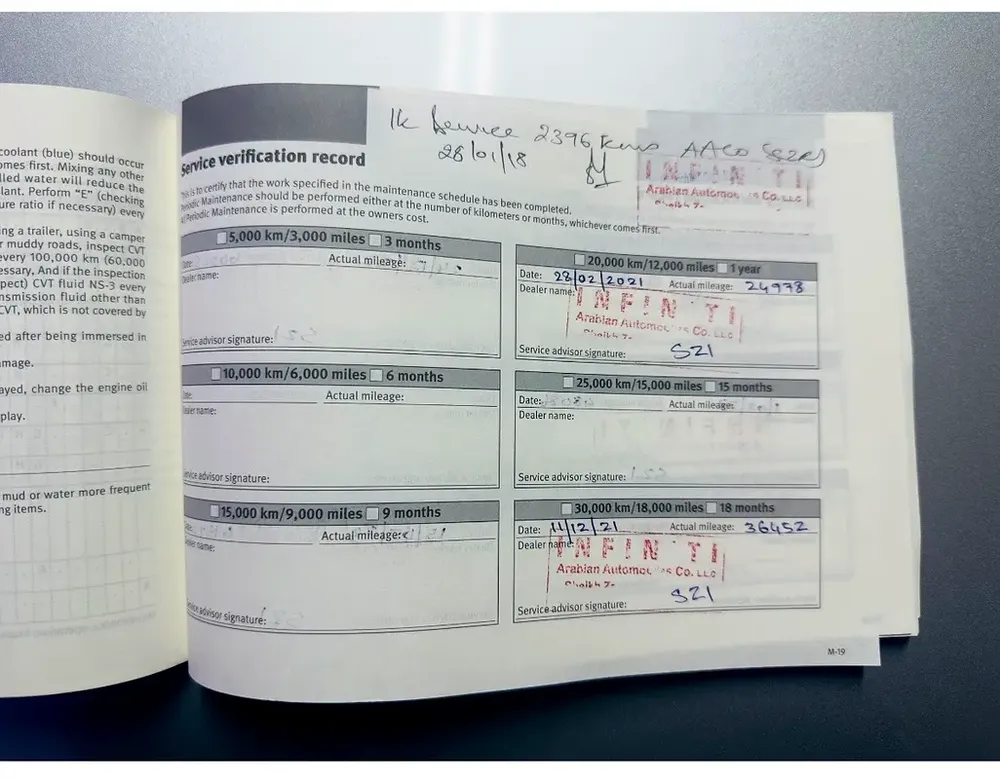 coolant (blue) should occur
omes first. Mixing any other
lled water will reduce the
lant. Perform "E" (checking
ure ratio if necessary) every
ng a trailer, using a camper
r muddy roads, inspect CVT
every 100,000 km (60,000
essary. And if the inspection
pect) CVT fluid NS-3 every
nsmission fluid other than
CVT, which is not covered by
ed after being immersed in
mage.
ayed, change the engine oil
play.
mud or water more frequent
ng items.
1k Service 2396 Kms AACO
28/01/18
INFINITI
Arabian Automob es Co. LLC
Service verification record
is to certify that the work specified in the maintenance schedule has been completed.
Periodic Maintenance should be performed either at the number of kilometers or months, whichever comes first.
Periodic Maintenance is performed at the owners cost.
5,000 km/3,000 miles 3 months
Date: Actual mileage:
Dealer name:
Service advisor signature:
10,000 km/6,000 miles 6 months
Date: Actual mileage:
Dealer name:
Service advisor signature:
15,000 km/9,000 miles 9 months
Date: Actual mileage:
Dealer name:
Service advisor signature:
20,000 km/12,000 miles 1 year
Date: 28/02/2021 Actual mileage: 24978
Dealer name: INFIN TI
Arabian Automo es Co. LLC
Service advisor signature: S21
25,000 km/15,000 miles 15 months
Date: Actual mileage:
Dealer name:
Service advisor signature:
30,000 km/18,000 miles 18 months
Date: 11/12/21 Actual mileage: 36452
Dealer name: INFIN TI
Arabian Automo es Co. LLC
Service advisor signature: S21
M-19